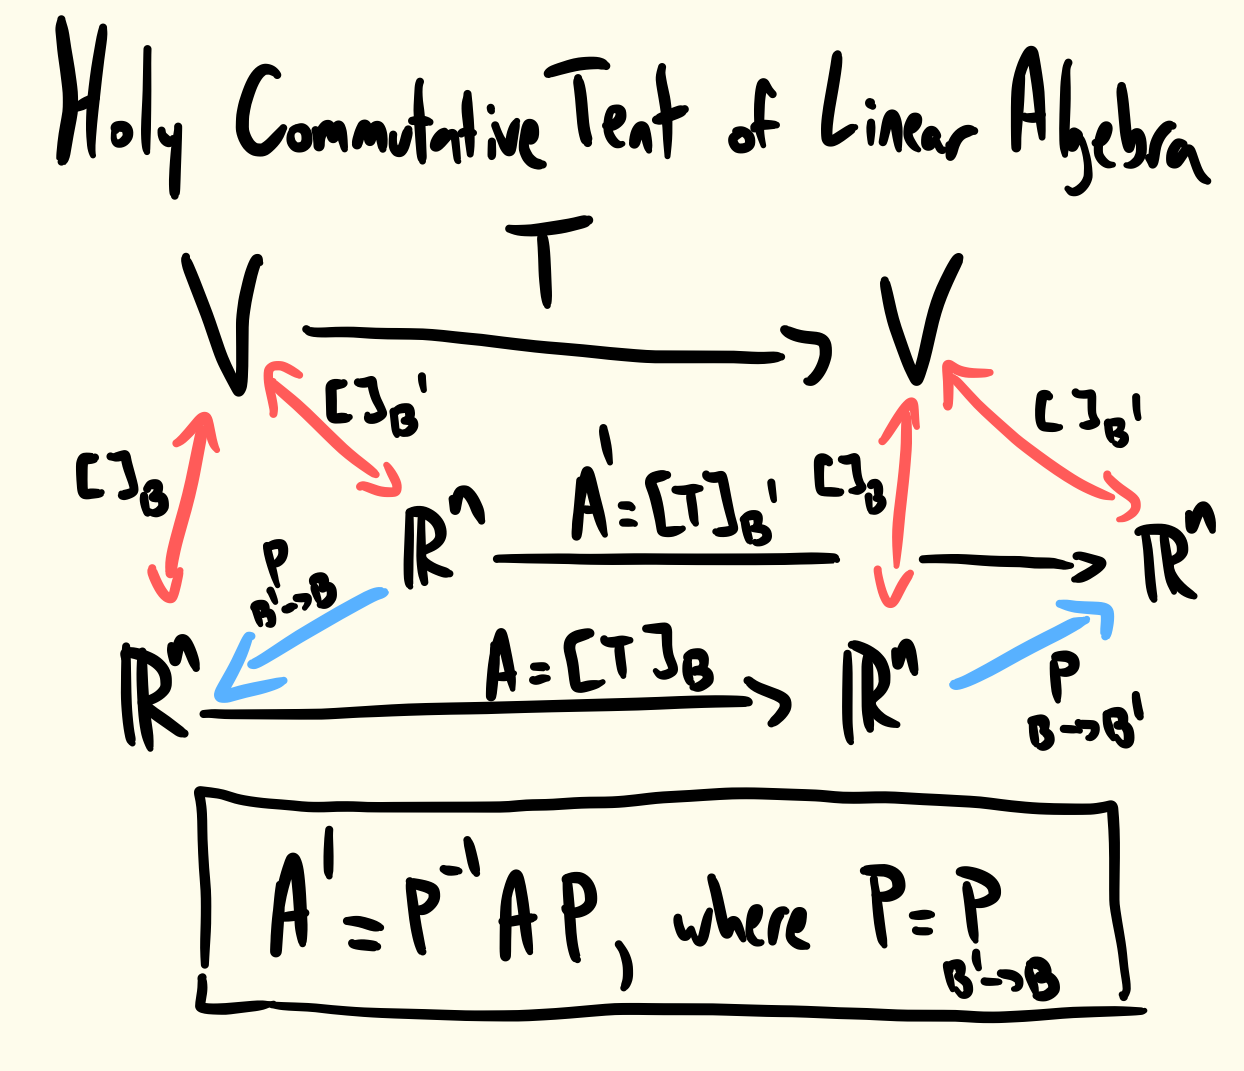 Holy Commutative Tent of Linear Algebra
T
V V
[]_B' []_B'
[]_B []_B
A' = [T]_B'
ℝⁿ ℝⁿ
P B'→B
A = [T]_B
ℝⁿ ℝⁿ
P B→B'
A' = P⁻¹AP, where P = P B'→B